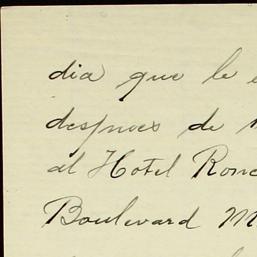 dia que le
despues de
al Hotel
Boulevard